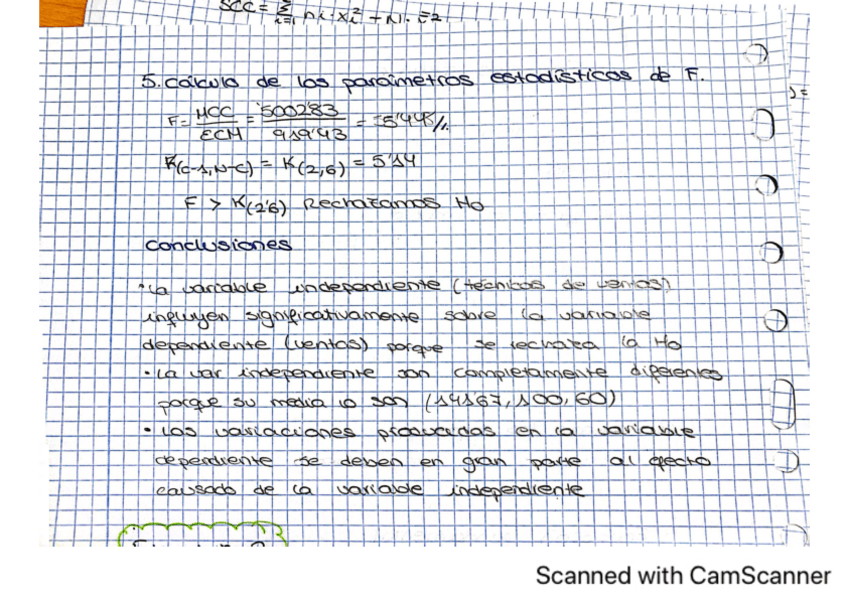 SCC = Σ i=1 ni·xi² + N·x̄²
5. Cálculo de los parámetros estadísticos de F.
F = MCC / ECM = 5002'83 / 919'43 = 5'44%.
K(C-1, N-C) = K(2,6) = 5'14
F > K(2'6) Rechazamos Ho
Conclusiones
• La variable independiente (técnicas de ventas)
influyen significativamente sobre la variable
dependiente (ventas) porque se rechaza la Ho
• La var independiente son completamente diferentes
porque su media lo son (141'67, 100, 60)
• Las variaciones producidas en la variable
dependiente se deben en gran parte al efecto
causado de la variable independiente
Scanned with CamScanner